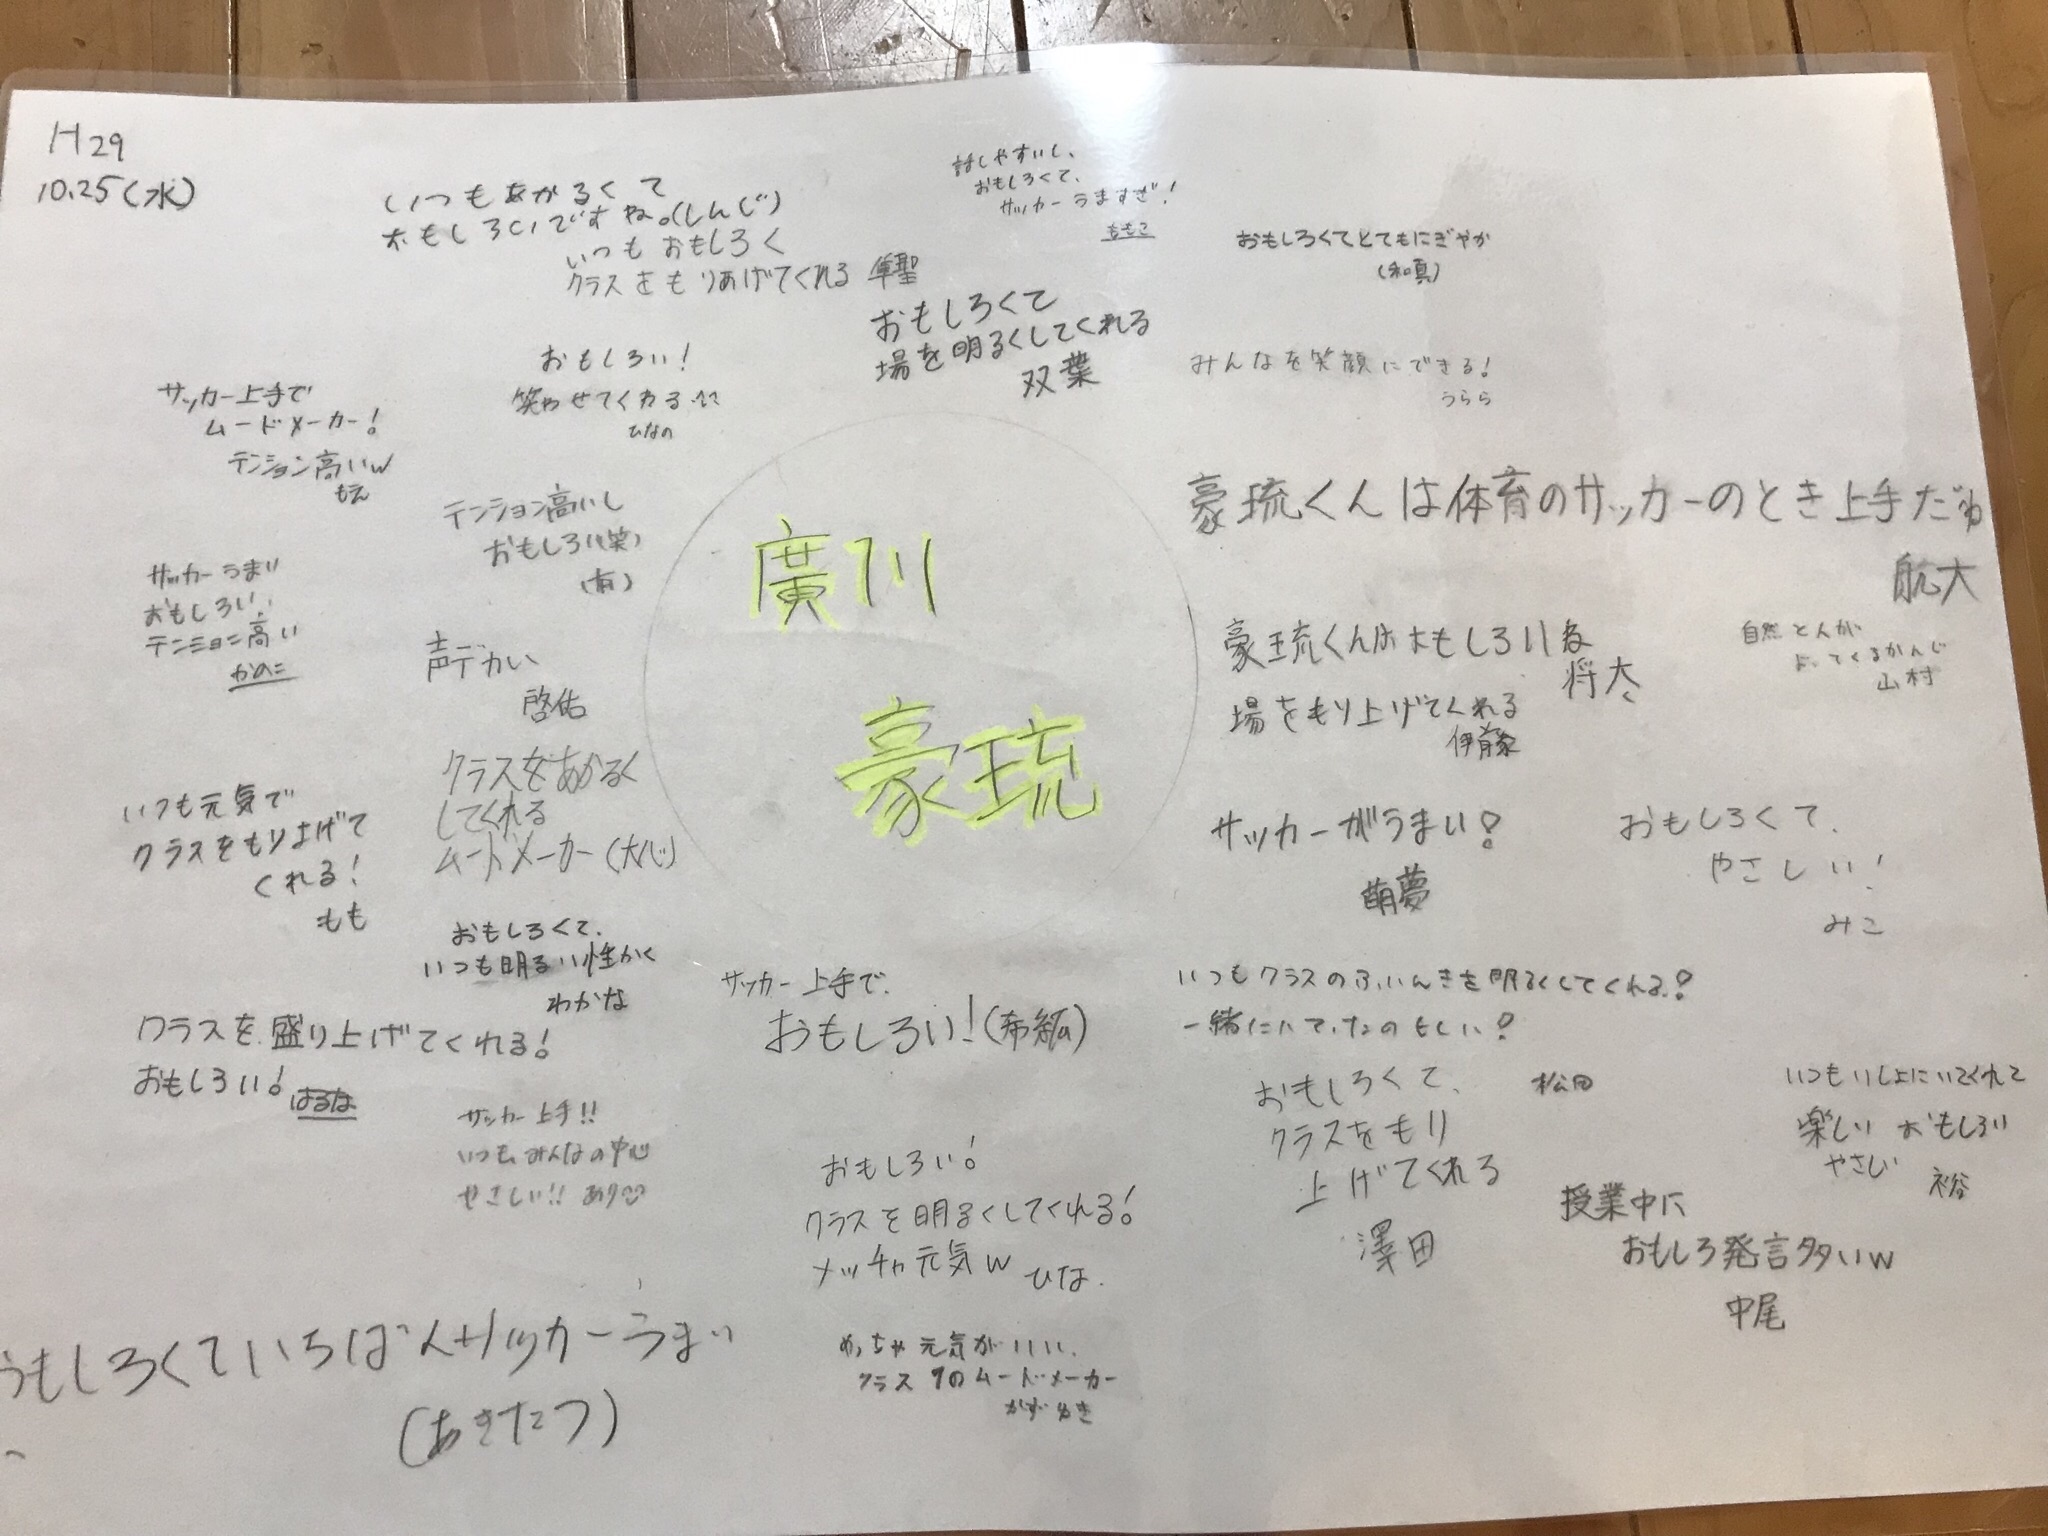 H29
10.25(水)
いつもあかるくて
おもしろいですね。(しんじ)
いつもおもしろく
クラスをもりあげてくれる 隼聖
話しやすいし、
おもしろくて、
サッカーうますぎ!
ももこ
おもしろくてとてもにぎやか
(和真)
おもしろくて
場を明るくしてくれる
双葉
みんなを笑顔にできる!
うらら
おもしろい!
笑わせてくれる
ひなの
サッカー上手で
ムードメーカー!
テンション高いw
もえ
テンション高いし
おもしろい(笑)
(有)
サッカーうまい
おもしろい、
テンション高い
かのこ
声デカい
啓佑
廣川
豪琉
豪琉くんは体育のサッカーのとき上手だね
航大
豪琉くんはおもしろいね
将大
自然と人が
よってくるかんじ
山村
場をもり上げてくれる
伊藤
クラスをあかるく
してくれる
ムードメーカー(大心)
いつも元気で
クラスをもり上げて
くれる!
もも
サッカーがうまい!
萌夢
おもしろくて、
やさしい!
みこ
おもしろくて、
いつも明るい性かく
わかな
サッカー上手で、
おもしろい!(希紙)
いつもクラスのふんいきを明るくしてくれる!
一緒にいて、たのもしい!
松田
クラスを盛り上げてくれる!
おもしろい! はるな
サッカー上手!!
いつもみんなの中心
やさしい!! あり
おもしろくて、
クラスをもり
上げてくれる
澤田
いつもいっしょにいてくれて
楽しい おもしろい
やさしい
裕
おもしろい!
クラスを明るくしてくれる!
メッチャ元気w ひな.
授業中に
おもしろ発言多いw
中尾
おもしろくていちばんサッカーうまい
(あきたつ)
めっちゃ元気がいい、
クラス1のムードメーカー
かずゆき